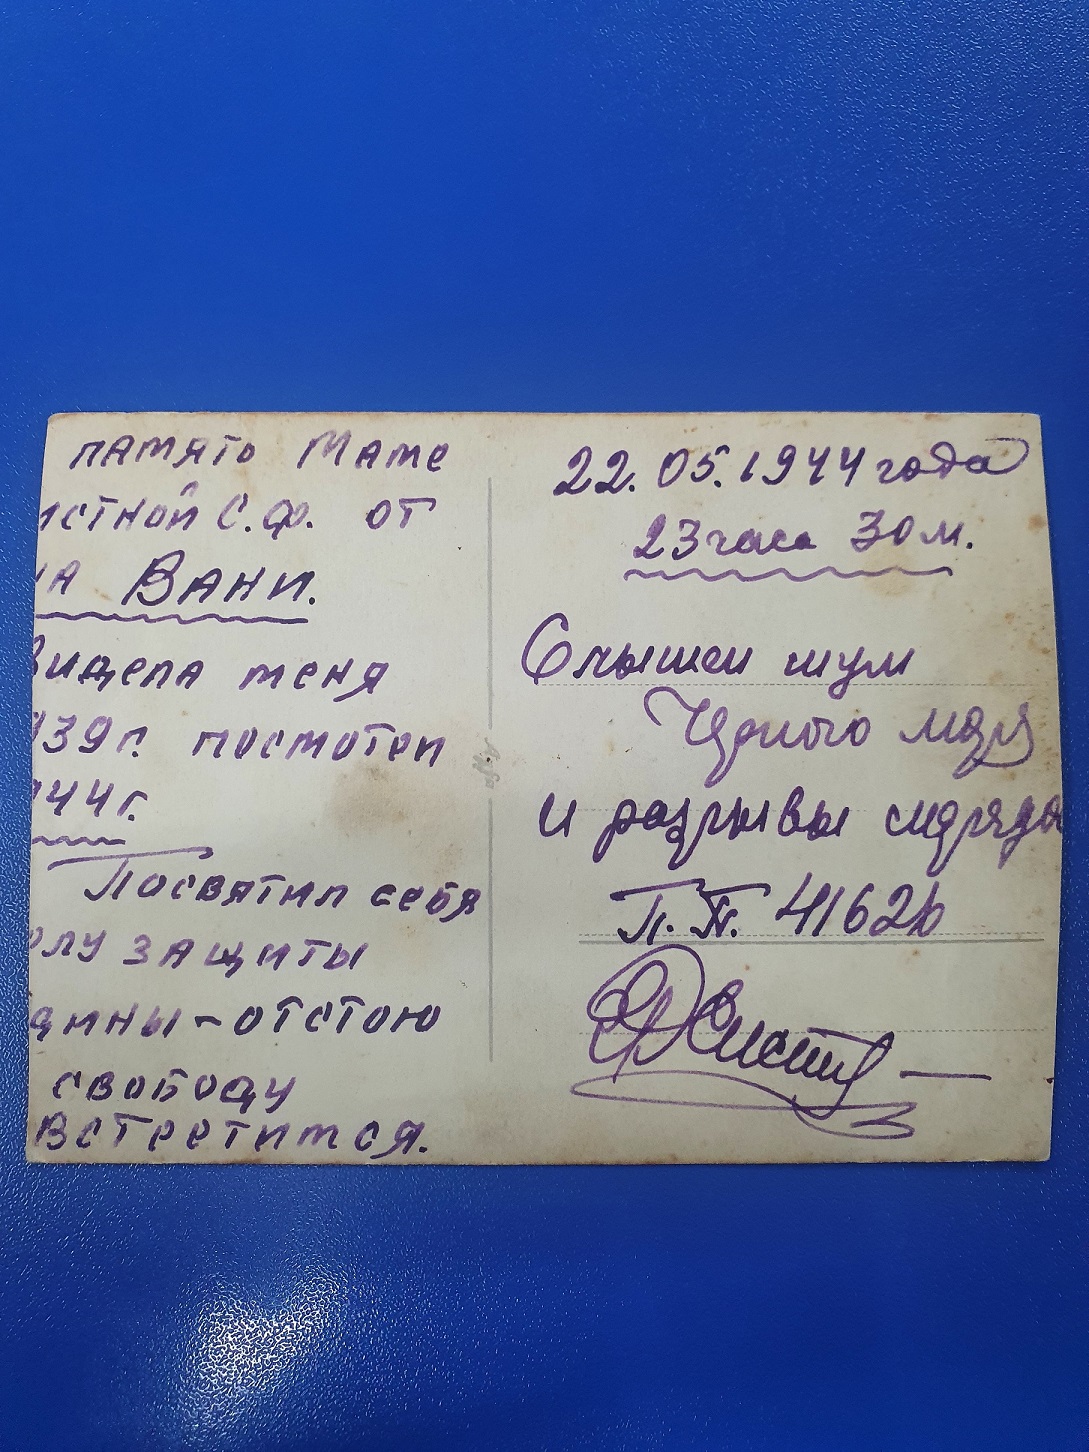 память Маме
истной С.Ф. от
на Вани.
Видела меня
939г. посмотри
944г.
Посватил себя
олу защиты
дины - отстою
свободу
встретимся.
22.05.1944 года
23 часа 30 м.
Слышен шум
Чорного моря
и разрывы снаряда
П.П. 41626